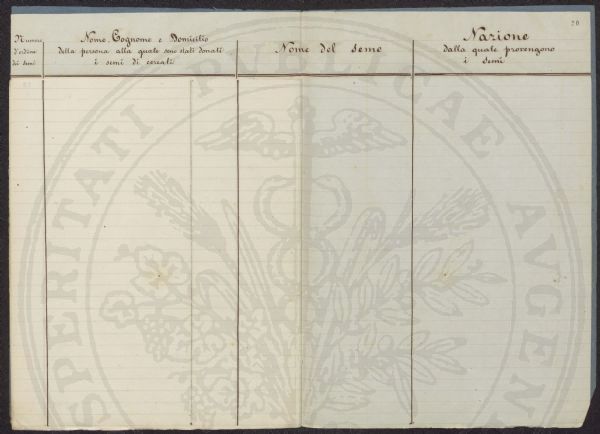 20
Numero
d'ordine
dei semi
Nome, Cognome e Domicilio
della persona alla quale sono stati donati
i semi di cereali
Nome del seme
Nazione
dalla quale provengono
i semi
PROSPERITATI PUBLICAE AVGENDAE